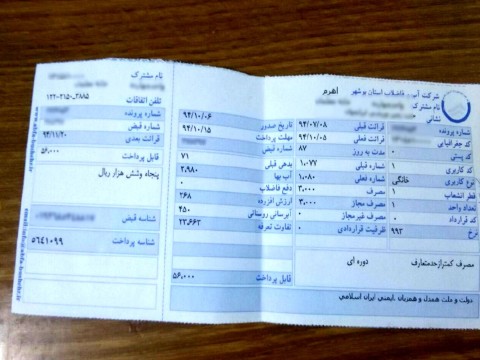 شرکت آب و فاضلاب استان بوشهر
اهرم
نام مشترک
نشانی
شماره پرونده
کد جغرافیایی
کد پستی ۰
کد کاربری ۱
نوع کاربری خانگی
قطر انشعاب ۱
تعداد واحد ۱
کد قرارداد ۰
نرخ ۹۹۲
قرائت قبلی ۹۴/۰۷/۰۸
قرائت فعلی ۹۴/۱۰/۰۵
مدت به روز ۸۷
شماره قبلی ۱,۰۷۷
شماره فعلی ۱,۰۸۰
مصرف ۳,۰۰۰
مصرف مجاز ۳,۰۰۰
مصرف غیرمجاز ۰
ظرفیت قراردادی ۰
مصرف کمتر از حد متعارف
دوره ای
دولت و ملت همدل و همزبان .ایمنی ایران اسلامی
تاریخ صدور ۹۴/۱۰/۰۶
مهلت پرداخت ۹۴/۱۰/۱۵
شماره قبض
بدهی قبلی ۷۱
آب بها ۲,۹۸۰
دفع فاضلاب ۰
ارزش افزوده ۲۶۸
آبرسانی روستائی ۴۵۰
تفاوت تعرفه ۲۳,۶۶۳
قابل پرداخت ۵۶,۰۰۰
نام مشترک
تلفن اتفاقات ۱۲۲-۳۱۵۰_۳۸۸۵
شماره پرونده
شماره قبض
قرائت بعدی ۹۴/۱۱/۲۰
قابل پرداخت ۵۶,۰۰۰
پنجاه وشش هزار ریال
شناسه قبض
شناسه پرداخت ۵۶۴۱۰۹۹